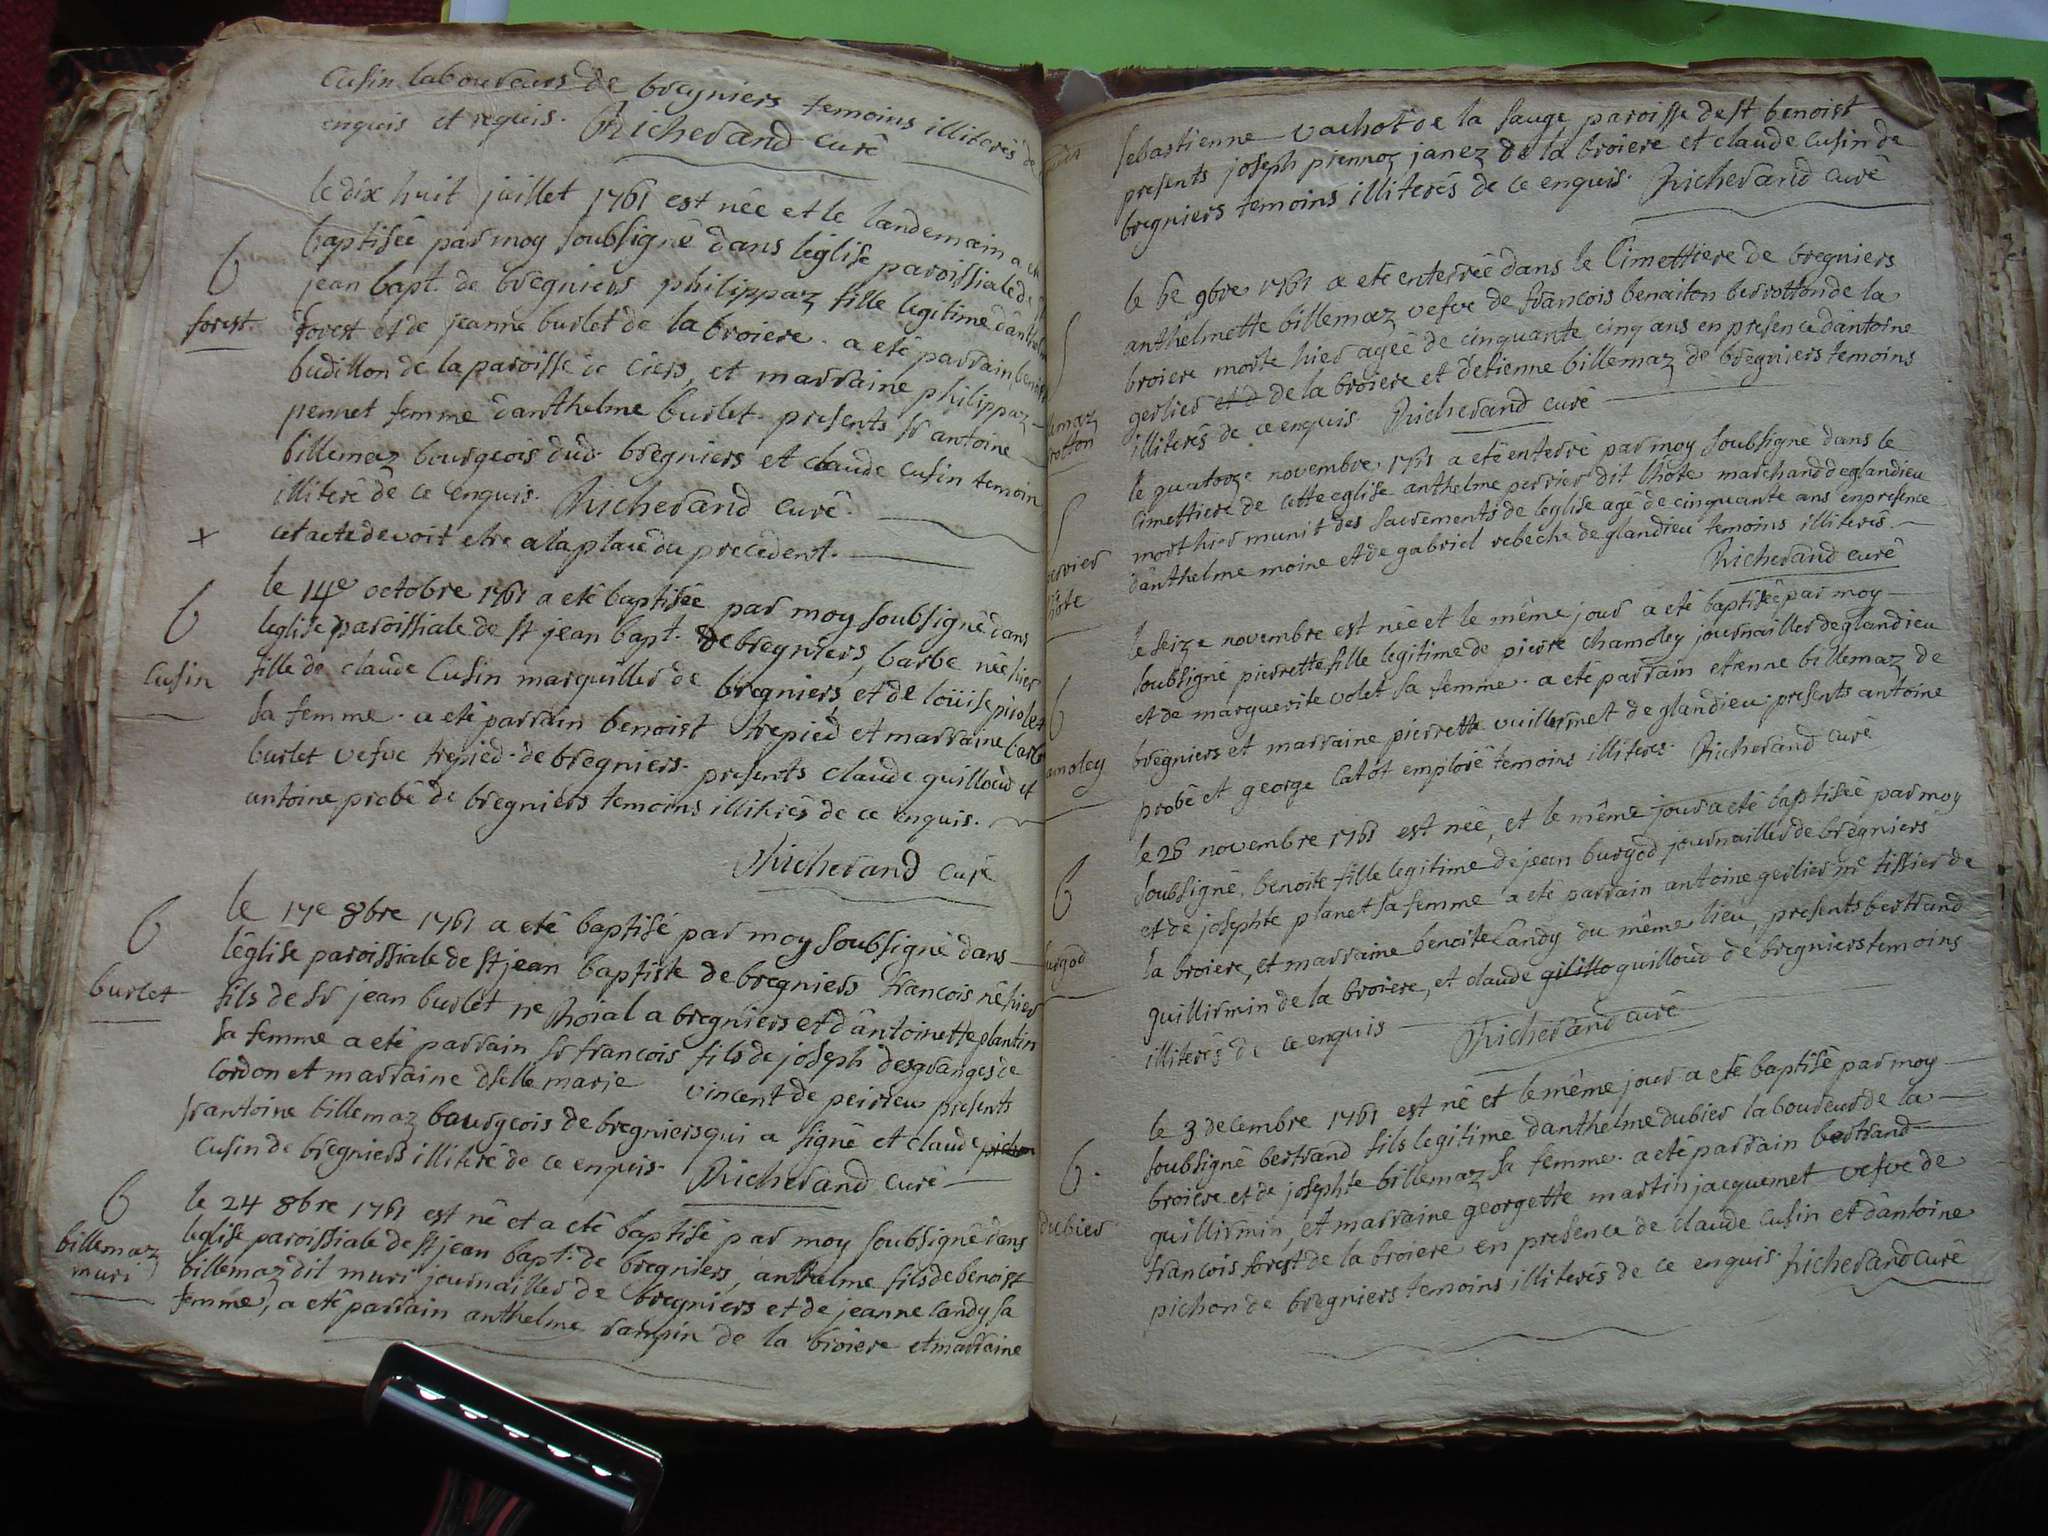 Cusin laboureurs de bregniers temoins illiterés de
enquis et requis. Richerand curé
le dix huit juillet 1761 est née et le landemain a été
baptisée par moy soubsigné dans l'église paroissiale de St
b
jean bapt. de bregniers philippaz fille legitime d'anthelme
forest
forest et de jeanne burlet de la broiere. a eté parrain benoit
budillon de la paroisse de Ciers, et marraine philippaz
pennet femme d'anthelme burlet. presents sr antoine
billemaz bourgeois dud. bregniers et claude Cusin temoin
illiteré de ce enquis. Richerand curé.
x cet acte devoit etre a la place du precedent.
le 14e octobre 1761 a eté baptisée par moy soubsigné dans
b
leglise paroissiale de st jean bapt. de bregniers, barbe née hier
Cusin
fille de claude Cusin marguillier de bregniers, et de loüise pirolet
sa femme. a eté parrain benoist trepied et marraine barbe
burlet vefve trepied. de bregniers. presents claude guilloud et
antoine probé de bregniers temoins illiterés de ce enquis.
Richerand curé
b
le 17e 8bre 1761 a eté baptisé par moy soubsigné dans
l'église paroissiale de st jean baptiste de bregniers francois né hier
burlet
fils de sr jean burlet ne Roial a bregniers et d'antoinette plantin
sa femme a eté parrain sr francois fils de joseph desgranges de
cordon et marraine dselle marie vincent de peirieu presents
sr antoine billemaz bourgeois de bregniers qui a signé et claude pichon
Cusin de bregniers illiteré de ce enquis. Richerand curé
b
le 24 8bre 1761 est né et a eté baptisé par moy soubsigné dans
billemaz
leglise paroissiale de st jean bapt. de bregniers, anthelme fils de benoist
muri
billemaz dit muri journaillier de bregniers et de jeanne landy sa
femme, a eté parrain anthelme rampin de la broiere et marraine
sebastienne vachot de la sauge paroisse de st benoist
presents joseph piennoz janez de la broiere et claude Cusin de
bregniers temoins illiterés de ce enquis. Richerand curé
le 6e 9bre 1761 a eté enterrée dans le Cimettiere de bregniers
anthelmette billemaz vefve de francois benaiton berrotton de la
broiere morte hier agée de cinquante cinq ans en presence d'antoine
lemaz
gerlier et d de la broiere et d'etienne billemaz de bregniers temoins
rotton
illiterés de ce enquis. Richerand curé
le quatorze novembre 1761 a eté enterré par moy soubsigné dans le
Cimettiere de cette eglise anthelme perrier dit lhote marchand de glandieu
mort hier munit des sacrements de leglise agé de cinquante ans en presence
errier
d'anthelme moine et de gabriel rebeche de glandieu temoins illiterés.
hote
Richerand curé
le seize novembre est née et le même jour a eté baptisée par moy
soubsigné pierrette fille legitime de pierre chamoley journaillier de glandieu
b
et de marguerite volet sa femme. a eté parrain etienne billemaz de
amoley
bregniers et marraine pierrette vuillermet de glandieu. presents antoine
probé et george Catot emploié temoins illiteres. Richerand curé
le 26 novembre 1761 est née, et le même jour a eté baptisée par moy
b
soubsigné, benoite fille legitime de jean burgod journaillier de bregniers
et de josephte planet sa femme a eté parrain antoine gerlier me tissier de
urgod
la broiere, et marraine benoite landy du même lieu, presents bertrand
guillirmin de la broiere, et claude gilitto guilloud de bregniers temoins
illiterés de ce enquis Richerand curé
le 3 decembre 1761 est né et le même jour a eté baptisé par moy
b.
soubsigné bertrand fils legitime d'anthelme dubier laboureur de la
broiere et de josephte billemaz sa femme. a eté parrain bertrand
dubier
guillirmin, et marraine georgette martin jacquemet vefve de
francois forest de la broiere en presence de claude Cusin et d'antoine
pichon de bregniers temoins illiterés de ce enquis. Richerand curé